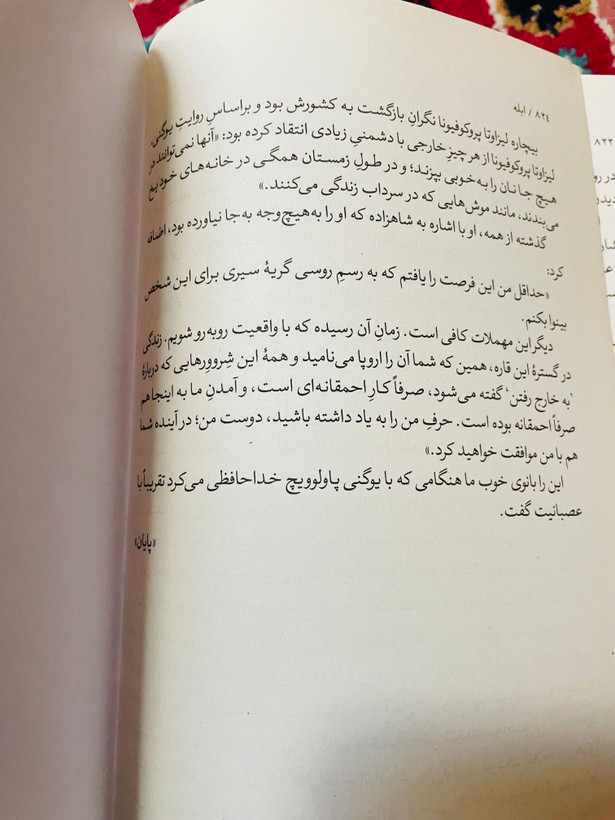 ۸۲۴ / ابله
بیچاره لیزاوتا پروکوفیونا نگرانِ بازگشت به کشورش بود و براساسِ روایتِ یوگنی،
لیزاوتا پروکوفیونا از هر چیزِ خارجی با دشمنیِ زیادی انتقاد کرده بود: «آنها نمی‌توانند در
هیچ جا نان را به خوبی بپزند؛ و در طولِ زمستان همگی در خانه‌های خود یخ
می‌بندند، مانند موش‌هایی که در سرداب زندگی می‌کنند.»
گذشته از همه، او با اشاره به شاهزاده که او را به‌هیچ‌وجه به‌جا نیاورده بود، اضافه
کرد:
«حداقل من این فرصت را یافتم که به رسمِ روسی گریهٔ سیری برای این شخصِ
بینوا بکنم.
دیگر این مهملات کافی است. زمانِ آن رسیده که با واقعیت روبه‌رو شویم. زندگی
در گسترهٔ این قاره، همین که شما آن را اروپا می‌نامید و همهٔ این شِروورهایی که دربارهٔ
'به خارج رفتن' گفته می‌شود، صرفاً کارِ احمقانه‌ای است، و آمدنِ ما به اینجا هم
صرفاً احمقانه بوده است. حرفِ من را به یاد داشته باشید، دوست من؛ در آینده شما
هم با من موافقت خواهید کرد.»
این را بانوی خوب ما هنگامی که با یوگنی پاولوویچ خداحافظی می‌کرد تقریباً با
عصبانیت گفت.
«پایان»
۸۲۲
در رو